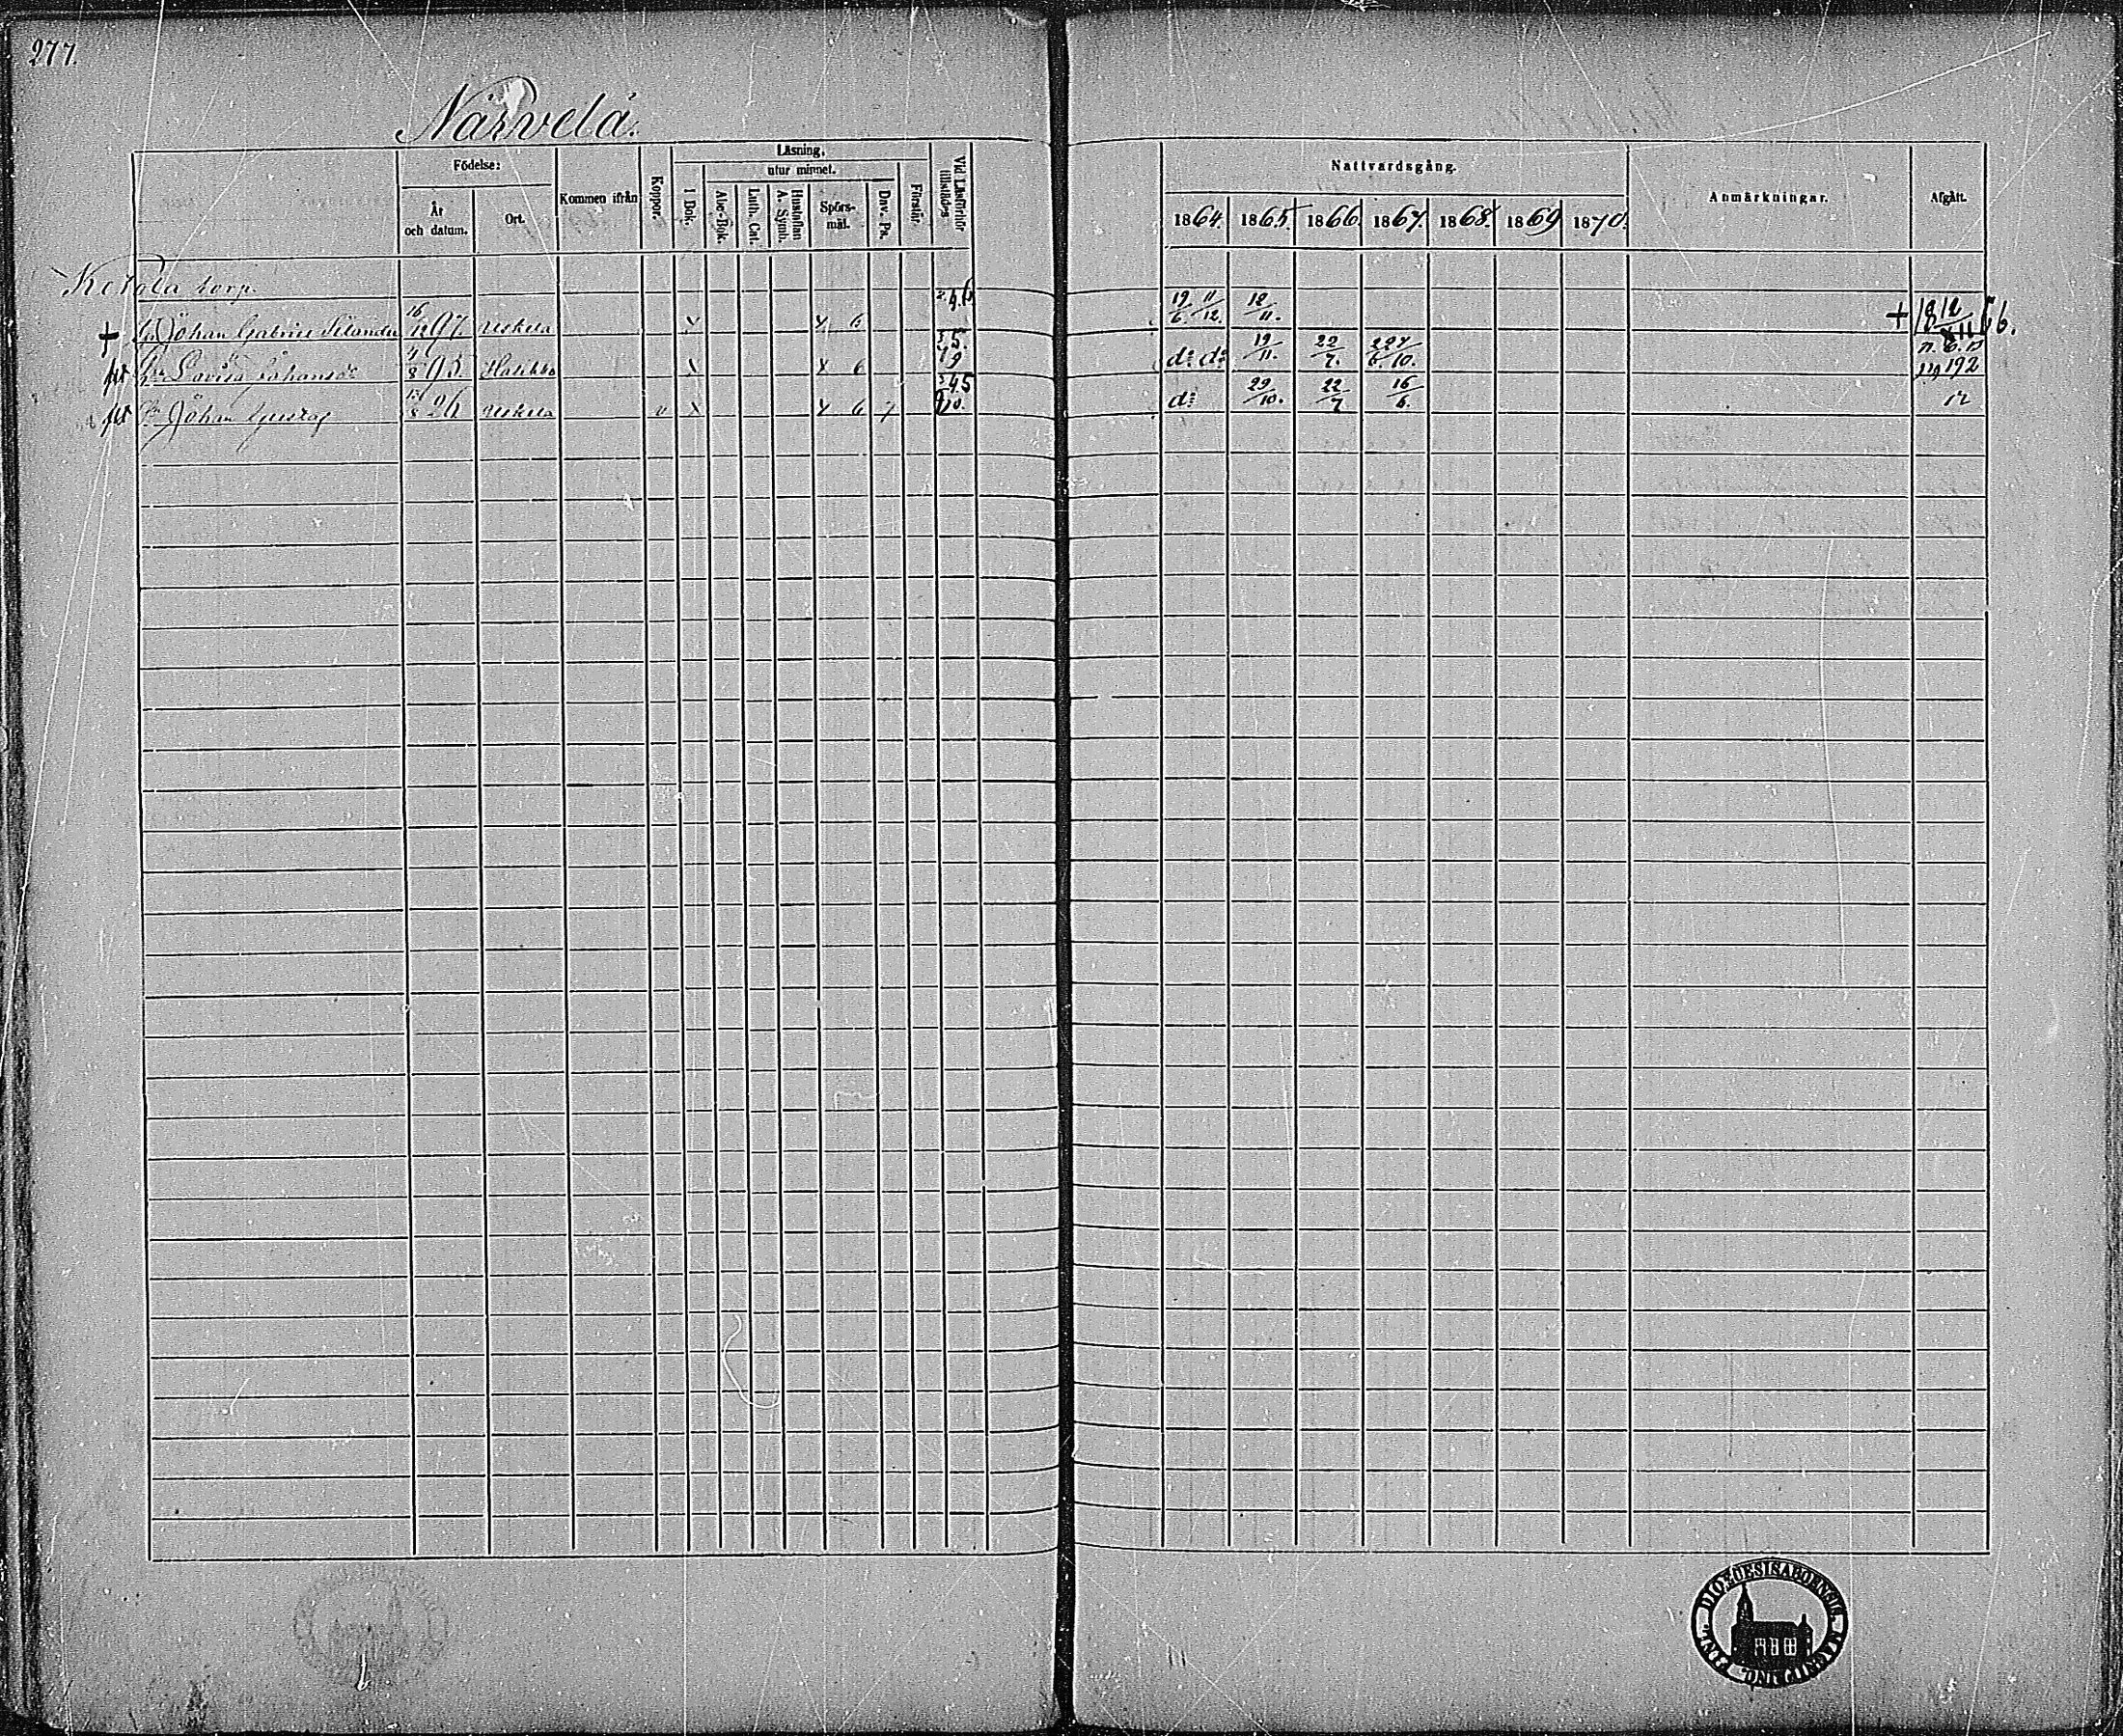 277.
Närvelä.
Födelse:
År och datum.
Ort.
Kommen ifrån
Koppor.
Läsning.
I Bok.
utur minnet.
Abc-Bok.
Luth. Cat.
Hustaflan A. Symb.
Spörs-mål.
Dav. Ps.
Förstår.
Vid Läsförhör tillstädes
Nattvardsgång.
1864. 1865. 1866. 1867. 1868. 1869 1870.
Anmärkningar.
Afgått.
Ketola torp.
+ Johan Gabriel Silander 16/12 97 Uskela x x 6 19/6 11/12. 18/11. +
Lovisa Johansdr 8 95. Halikko x x 6 do do 19/11. 22/7. 192
Johan Gustaf 8 26 Uskela v x x 6 7 do 29/10. 22/7 16/6.
DIOECESIS ABOENSIS